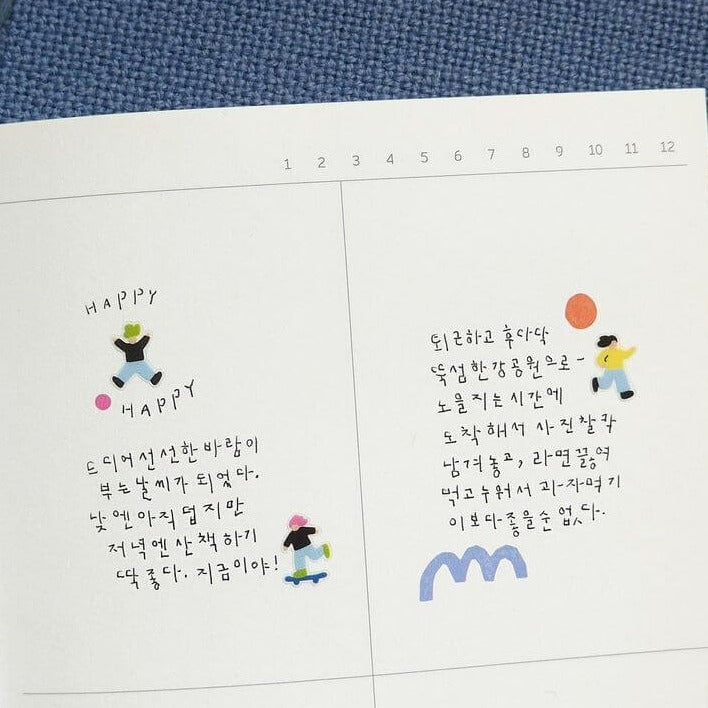 1 2 3 4 5 6 7 8 9 10 11 12
HAPPY
HAPPY
드디어 선선한 바람이
부는 날씨가 되었다.
낮엔 아직 덥지만
저녁엔 산책하기
딱 좋다. 지금이야!
퇴근하고 후다닥
뚝섬한강공원으로-
노을 지는 시간에
도착해서 사진 찰칵
남겨놓고, 라면 끓여
먹고 누워서 과자먹기
이보다 좋을순 없다.